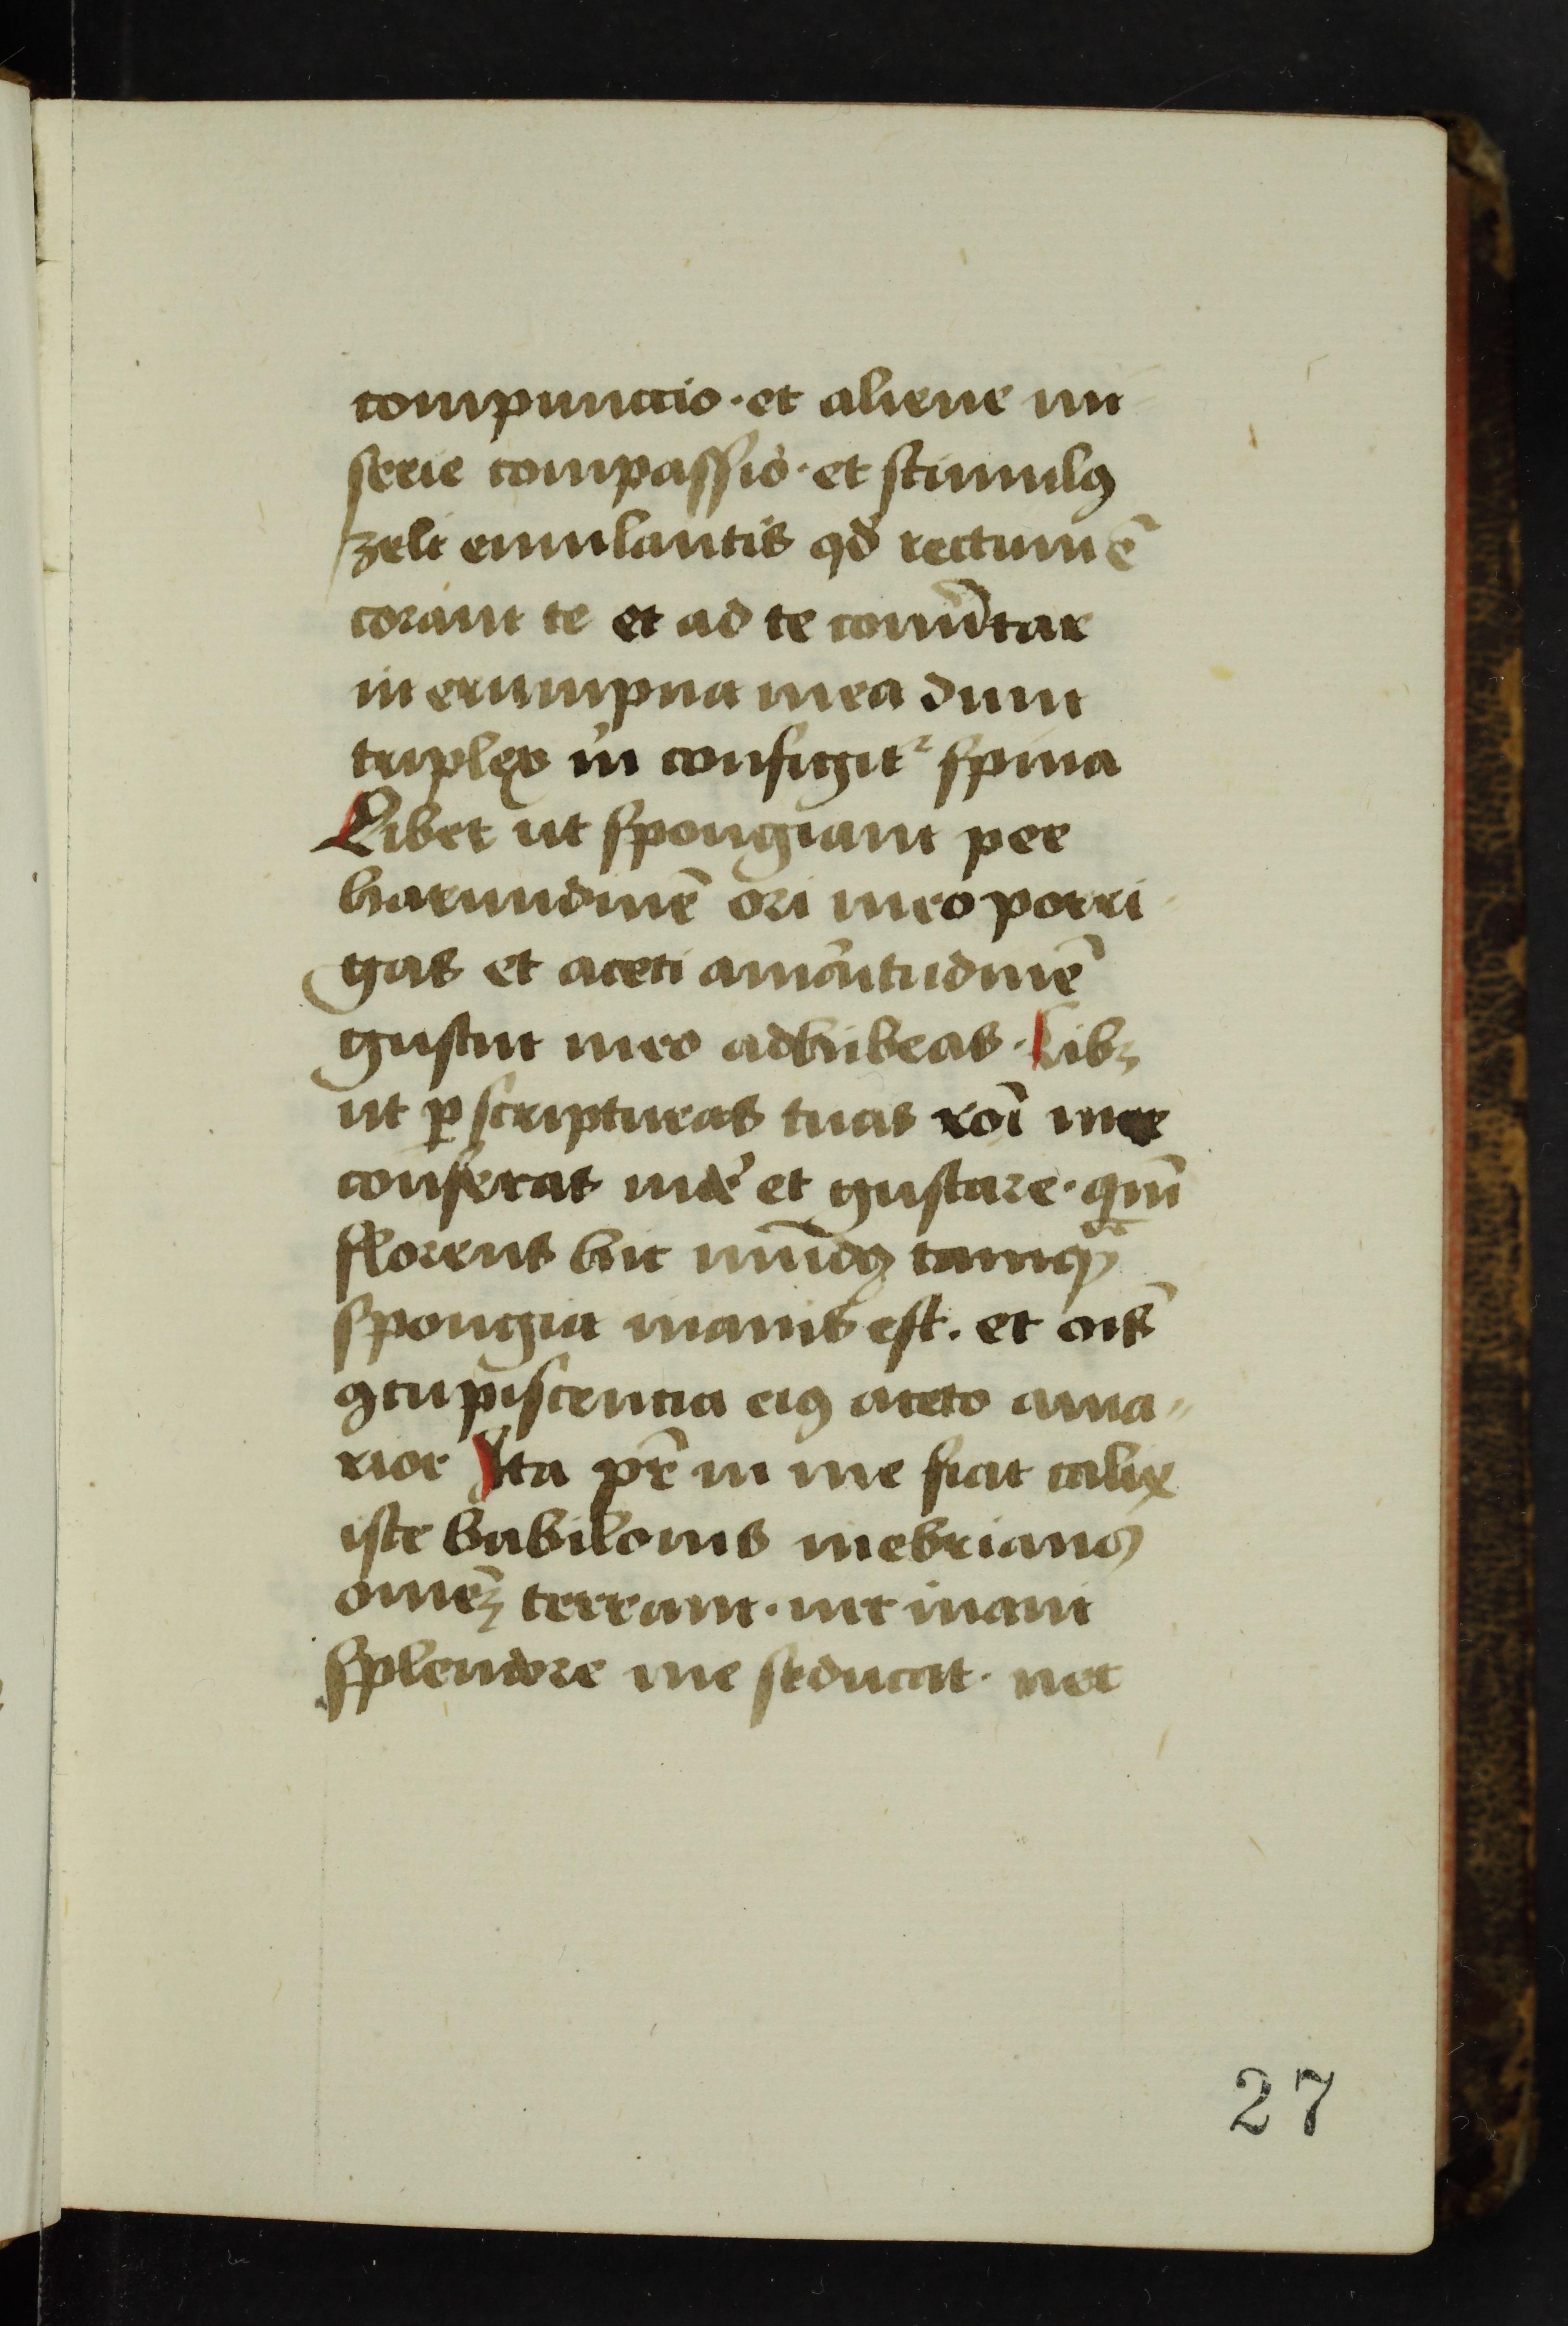 compunccio · et aliene mi
serie compassio · et stimulꝯ
zeli emulantis qd̛ rectum ē
coram te et ad te conũtar
in erumpna mea dum
triplex m̍ configit᷑ spina
Libet ut spongiam per
harundinē ori meo porri
gas et aceti amaritudinē
gustui meo adhibeas · Libꝫ
ut ꝑ scripturas tuas roı̄ mee
conferas videꝰ et gustare · qm̄
florens hic mūdꝯ tamqᷓ
spongia inanis est . et oı̄s
ꝯcupiscentia eiꝯ aceto ama〃
rior Ita pr̄ in me fiat calix
iste babilonis inebrians
omeꝫ̄ terram · nec inani
splendore me seducat · nec
27